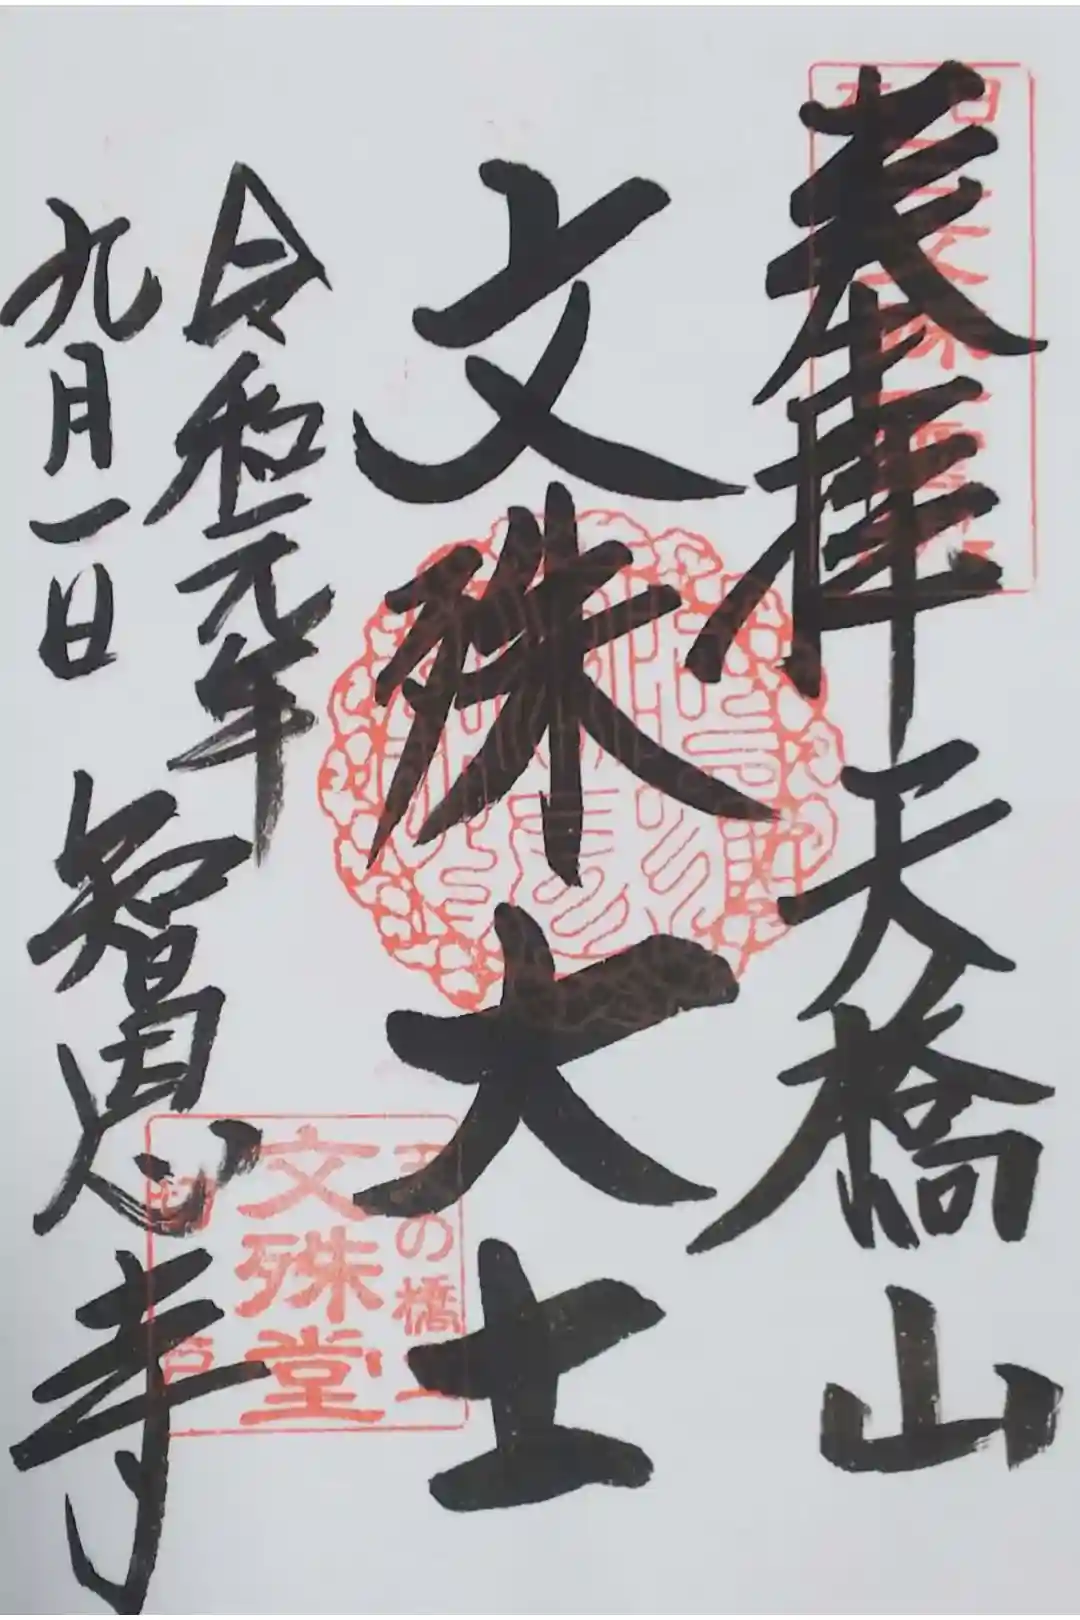 奉拝 天橋山
文殊大士
令和元年
九月一日 智恩寺
の橋
文殊堂